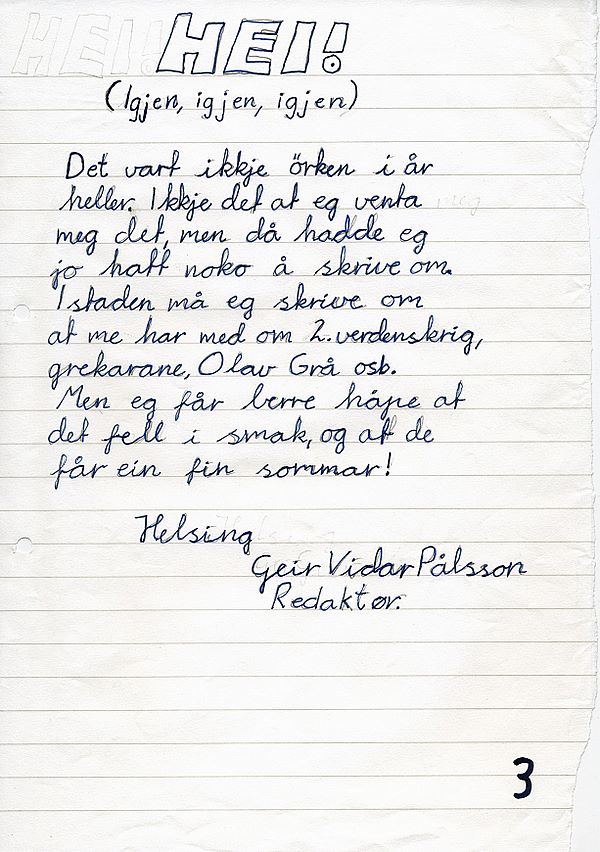 HEI! HEI!
(Igjen, igjen, igjen)
Det vart ikkje örken i år
heller. Ikkje det at eg venta
meg det, men då hadde eg
jo hatt noko å skrive om.
Istaden må eg skrive om
at me har med om 2. verdenskrig,
grekarane, Olav Grå osb.
Men eg får berre håpe at
det fell i smak, og at de
får ein fin sommar!
Helsing
Geir Vidar Pålsson
Redaktør.
3